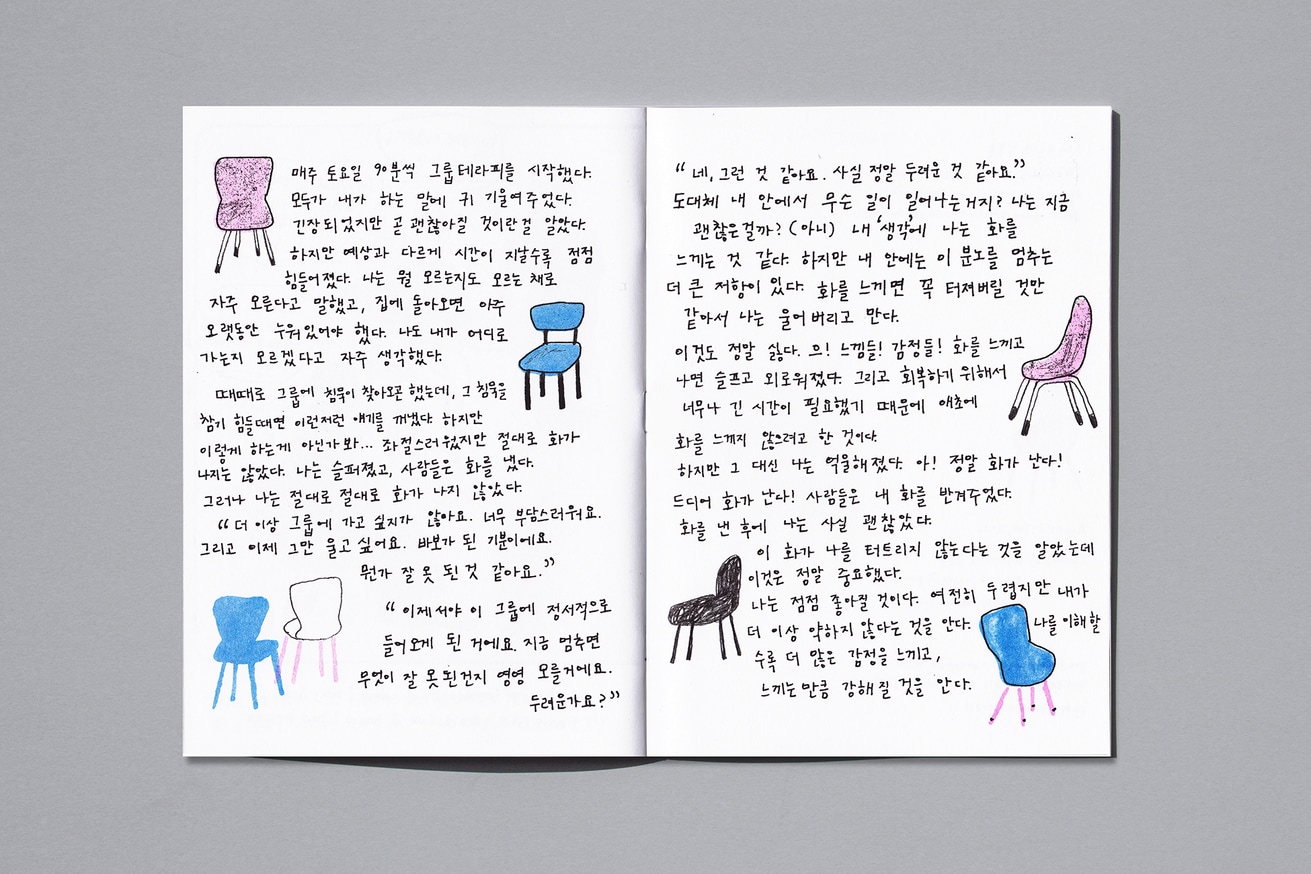 매주 토요일 90분씩 그룹테라피를 시작했다.
모두가 내가 하는 말에 귀 기울여주었다.
긴장되었지만 곧 괜찮아질 것이란걸 알았다.
하지만 예상과 다르게 시간이 지날수록 점점
힘들어졌다. 나는 뭘 모르는지도 모르는 채로
자주 모른다고 말했고, 집에 돌아오면 아주
오랫동안 누워있어야 했다. 나도 내가 어디로
가는지 모르겠다고 자주 생각했다.
때때로 그룹에 침묵이 찾아오곤 했는데, 그 침묵을
참기 힘들때면 이런저런 얘기를 꺼냈다. 하지만
이렇게 하는게 아닌가봐... 좌절스러웠지만 절대로 화가
나지는 않았다. 나는 슬퍼졌고, 사람들은 화를 냈다.
그러나 나는 절대로 절대로 화가 나지 않았다.
“더 이상 그룹에 가고 싶지가 않아요. 너무 부담스러워요.
그리고 이제 그만 울고 싶어요. 바보가 된 기분이에요.
뭔가 잘 못 된 것 같아요.”
“이제서야 이 그룹에 정서적으로
들어오게 된 거에요. 지금 멈추면
무엇이 잘 못 된건지 영영 모를거에요.
두려운가요?”
“네, 그런 것 같아요. 사실 정말 두려운 것 같아요.”
도대체 내 안에서 무슨 일이 일어나는거지? 나는 지금
괜찮은걸까? (아니) 내 ‘생각’에 나는 화를
느끼는 것 같다. 하지만 내 안에는 이 분노를 멈추는
더 큰 저항이 있다. 화를 느끼면 꼭 터져버릴 것만
같아서 나는 울어버리고 만다.
이것도 정말 싫다. 으! 느낌들! 감정들! 화를 느끼고
나면 슬프고 외로워졌다. 그리고 회복하기 위해서
너무나 긴 시간이 필요했기 때문에 애초에
화를 느끼지 않으려고 한 것이다.
하지만 그 대신 나는 억울해졌다. 아! 정말 화가 난다!
드디어 화가 난다! 사람들은 내 화를 반겨주었다.
화를 낸 후에 나는 사실 괜찮았다.
이 화가 나를 터트리지 않는다는 것을 알았는데
이것은 정말 중요했다.
나는 점점 좋아질 것이다. 여전히 두렵지만 내가
더 이상 약하지 않다는 것을 안다. 나를 이해할
수록 더 많은 감정을 느끼고,
느끼는만큼 강해질 것을 안다.